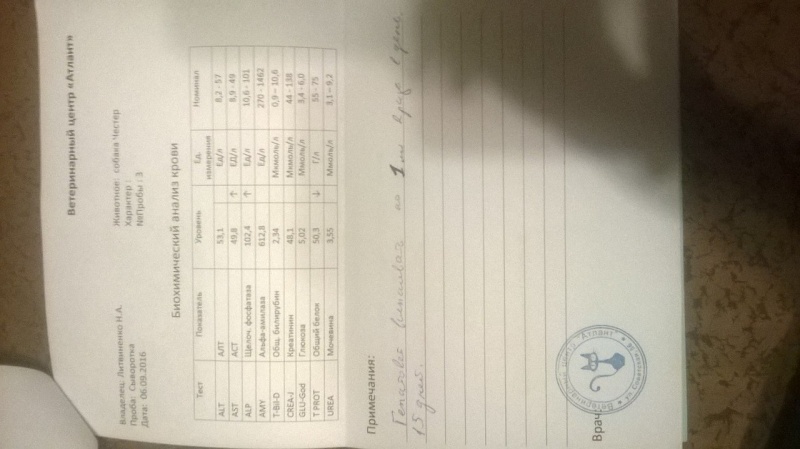 Ветеринарный центр «Атлант»
Владелец: Литвиненко Н.А. Животное: собака Честер
Проба: Сыворотка Характер :
Дата: 06.09.2016 №Пробы : 3
Биохимический анализ крови
Тест Показатель Уровень Ед. измерения Номинал
ALT АЛТ 53,1 Ед/л 8,2 - 57
AST АСТ 49,8 ↑ ЕД/л 8,9 - 49
ALP Щелоч. фосфатаза 102,4 ↑ Ед/л 10,6 - 101
AMY Альфа-амилаза 612,8 Ед/л 270 - 1462
T-Bil-D Общ. билирубин 2,34 Мкмоль/л 0,9 – 10,6
CREA-J Креатинин 48,1 Мкмоль/л 44 - 138
GLU-God Глюкоза 5,02 Ммоль/л 3,4 - 6,0
T PROT Общий белок 50,3 ↓ Г/л 55 - 75
UREA Мочевина 3,55 Ммоль/л 3,1 – 9,2
Примечания:
по 1 в день
15 дней.
Врач:
Ветеринарный центр "Атлант"